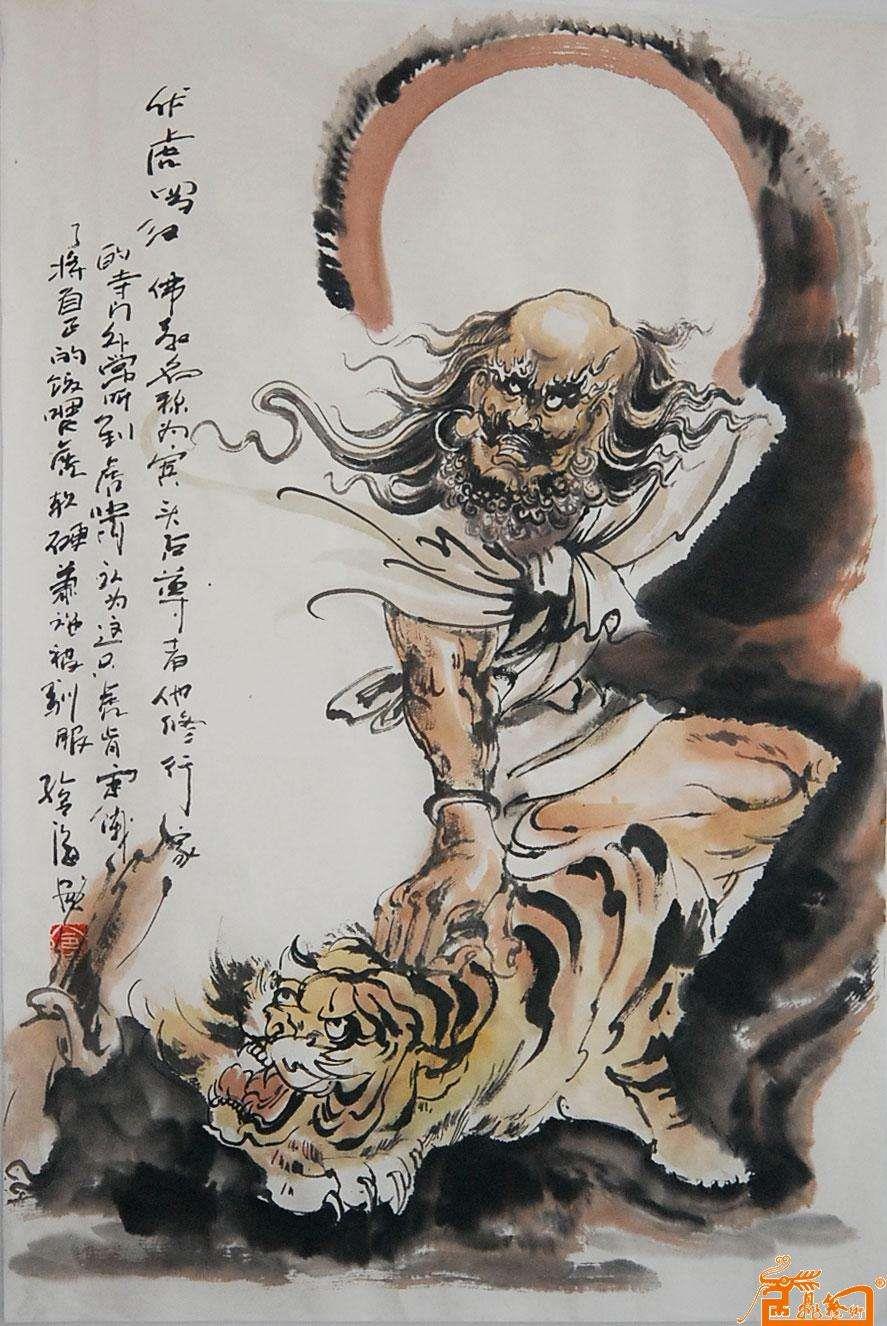 伏虎罗汉 佛教名称为宾头卢尊者他修行家
的寺门外常听到虎啸认为这只虎肯定饿
了将自己的饭喂虎软硬兼施被驯服